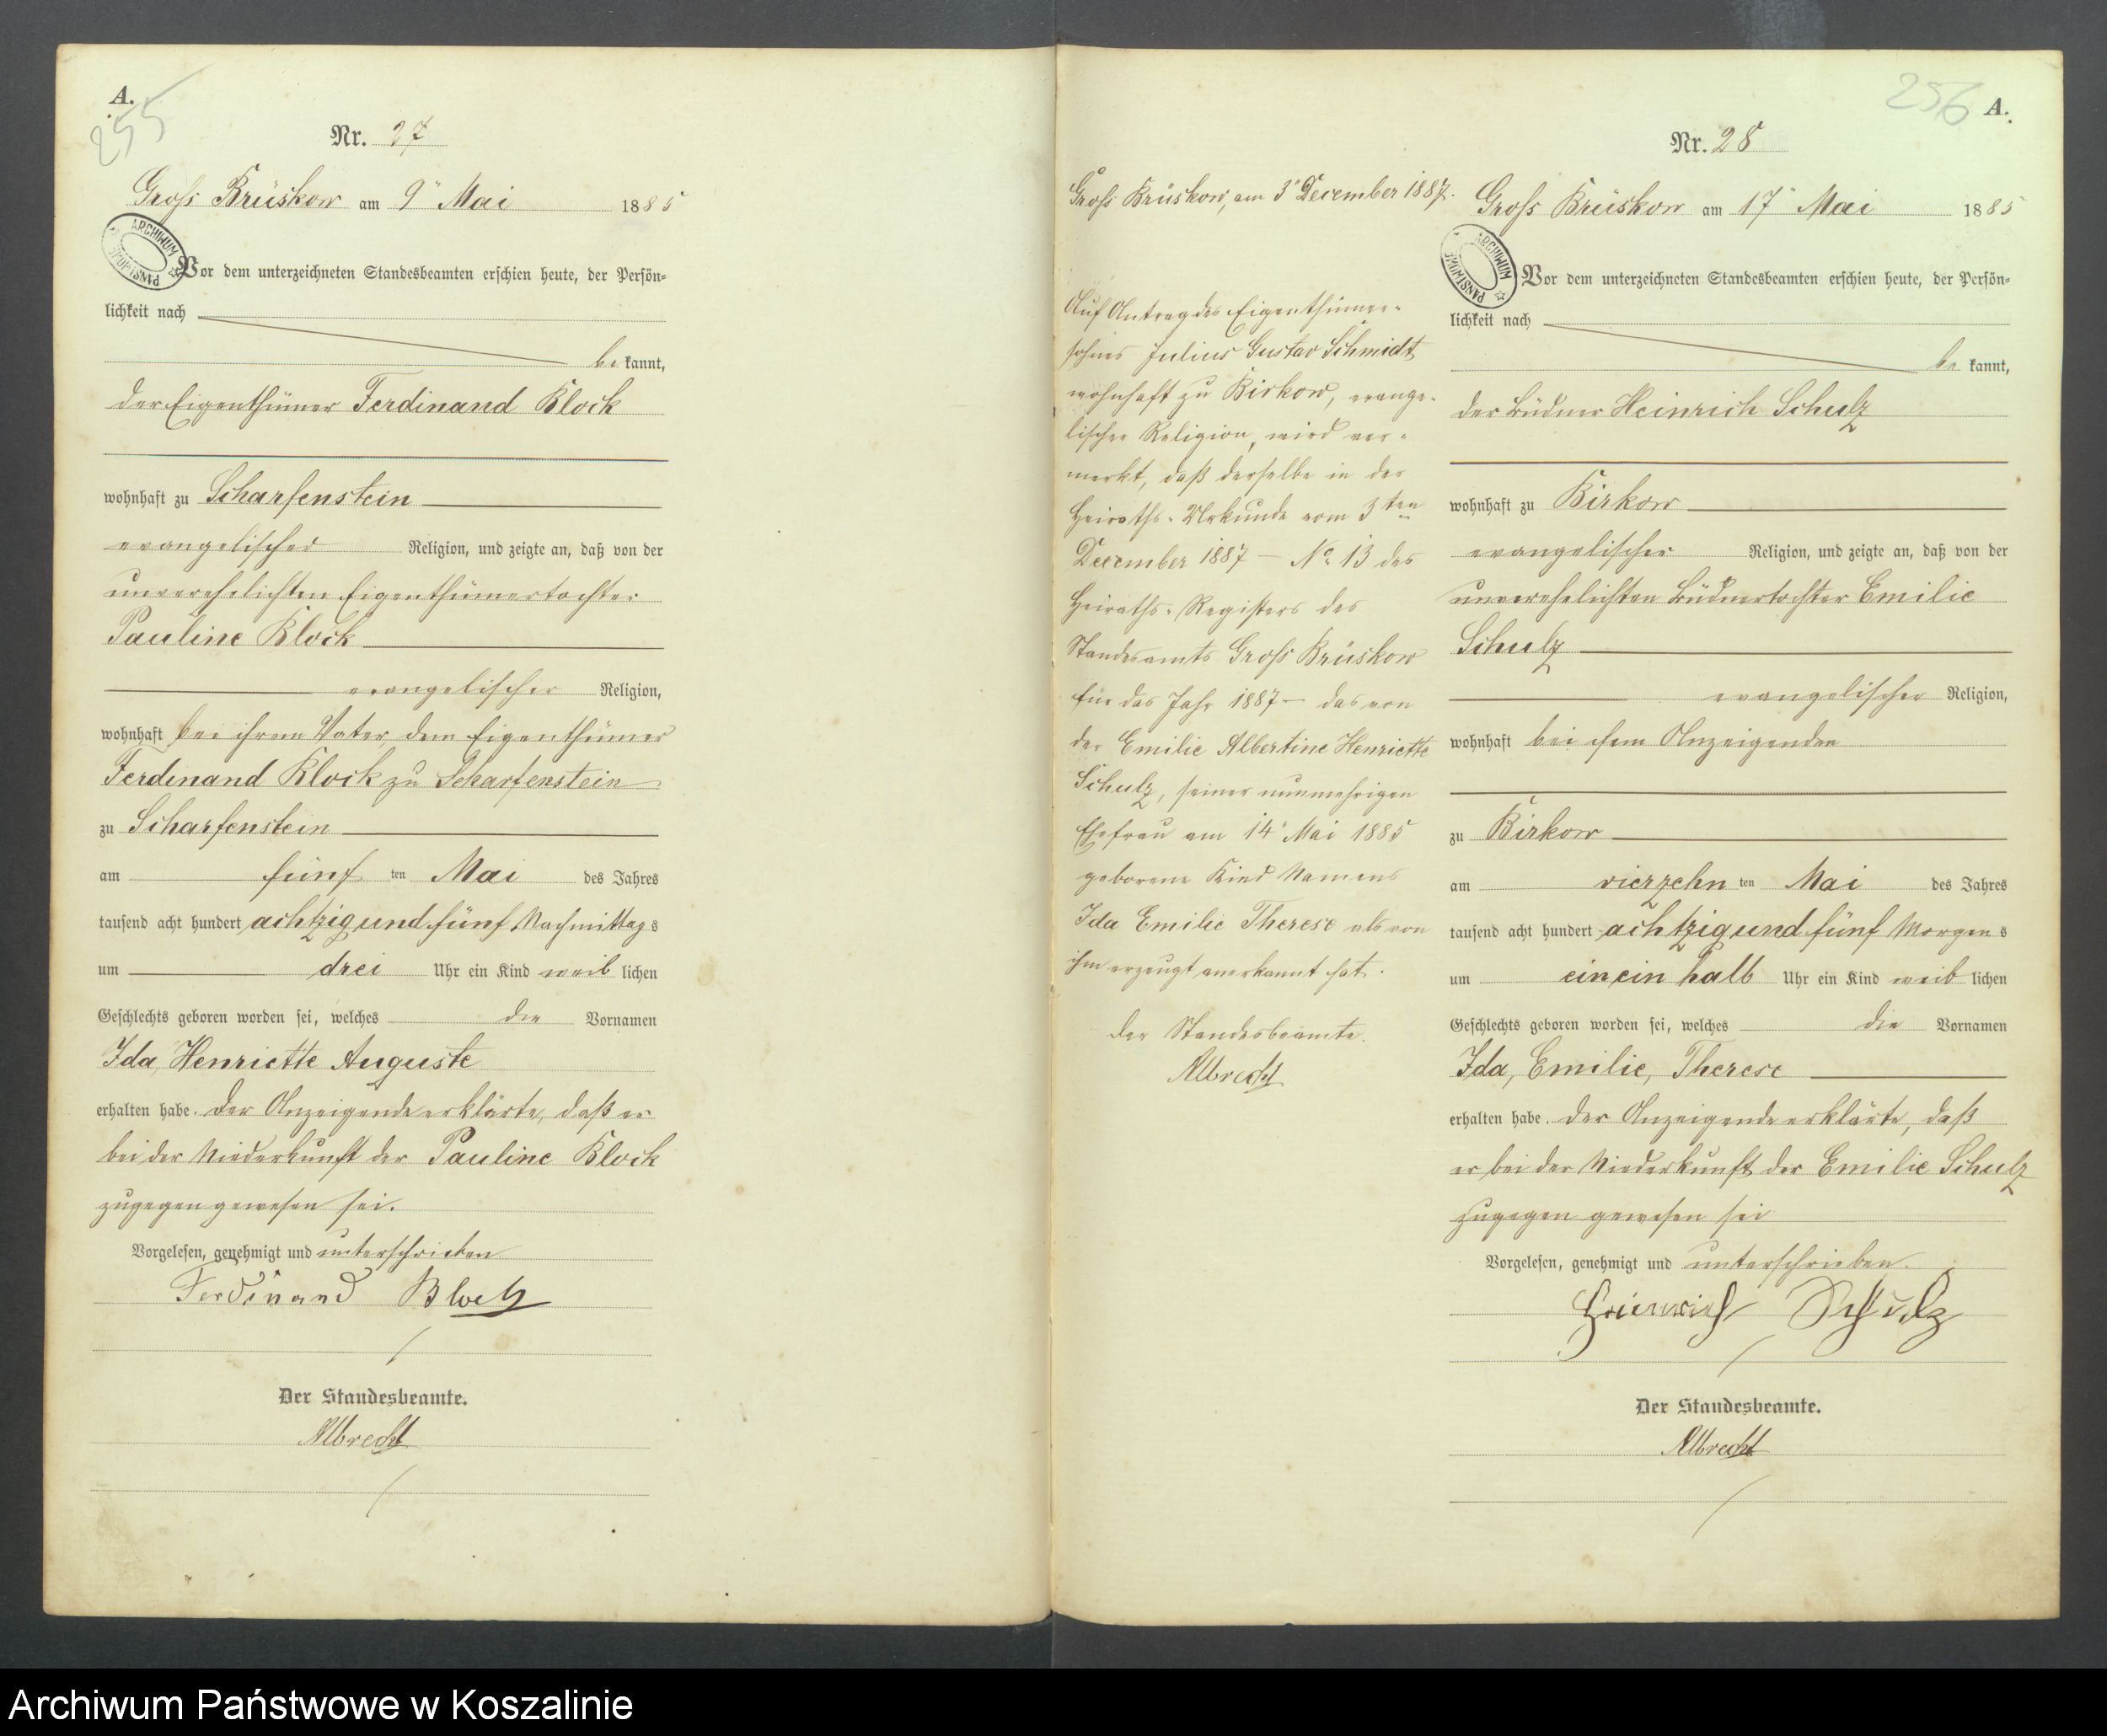 A.
255
Nr. 27
Groß Brüskow am 9ten Mai 1885
ARCHIWUM PAŃSTWOWE
Vor dem unterzeichneten Standesbeamten erschien heute, der Persön-
lichkeit nach
be kannt,
der Eigenthümer Ferdinand Block
wohnhaft zu Scharfenstein
evangelischer Religion, und zeigte an, daß von der
unverehelichten Eigenthümertochter
Pauline Block
evangelischer Religion,
wohnhaft bei ihrem Vater, dem Eigenthümer
Ferdinand Block zu Scharfenstein
zu Scharfenstein
am fünf ten Mai des Jahres
tausend acht hundert achtzig und fünf Nachmittags
um drei Uhr ein Kind weib lichen
Geschlechts geboren worden sei, welches die Vornamen
Ida, Henriette Auguste
erhalten habe. Der Anzeigende erklärte, daß er
bei der Niederkunft der Pauline Block
zugegen gewesen sei.
Vorgelesen, genehmigt und unterschrieben
Ferdinand Block
Der Standesbeamte.
Albrecht
Groß Brüskow, am 3ten December 1887.
Auf Antrag des Eigenthümer-
sohnes Julius Gustav Schmidt
wohnhaft zu Birkow, evange-
lischer Religion, wird ver-
merkt, daß derselbe in der
Heiraths-Urkunde vom 3ten
December 1887 – No 13 des
Heiraths-Registers des
Standesamts Groß Brüskow
für das Jahr 1887 – das von
der Emilie Albertine Henriette
Schulz, seiner nunmehrigen
Ehefrau am 14ten Mai 1885
geborene Kind Namens
Ida Emilie Therese als von
ihm erzeugt anerkannt hat.
Der Standesbeamte.
Albrecht
256 A.
Nr. 28
Groß Brüskow am 17ten Mai 1885
ARCHIWUM PAŃSTWOWE
Vor dem unterzeichneten Standesbeamten erschien heute, der Persön-
lichkeit nach
be kannt,
der Büdner Heinrich Schulz
wohnhaft zu Birkow
evangelischer Religion, und zeigte an, daß von der
unverehelichten Büdnertochter Emilie
Schulz
evangelischer Religion,
wohnhaft bei dem Anzeigenden
zu Birkow
am vierzehn ten Mai des Jahres
tausend acht hundert achtzig und fünf Morgens
um ein ein halb Uhr ein Kind weib lichen
Geschlechts geboren worden sei, welches die Vornamen
Ida, Emilie, Therese
erhalten habe. Der Anzeigende erklärte, daß
er bei der Niederkunft der Emilie Schulz
zugegen gewesen sei
Vorgelesen, genehmigt und unterschrieben.
Heinrich Schulz
Der Standesbeamte.
Albrecht
Archiwum Państwowe w Koszalinie